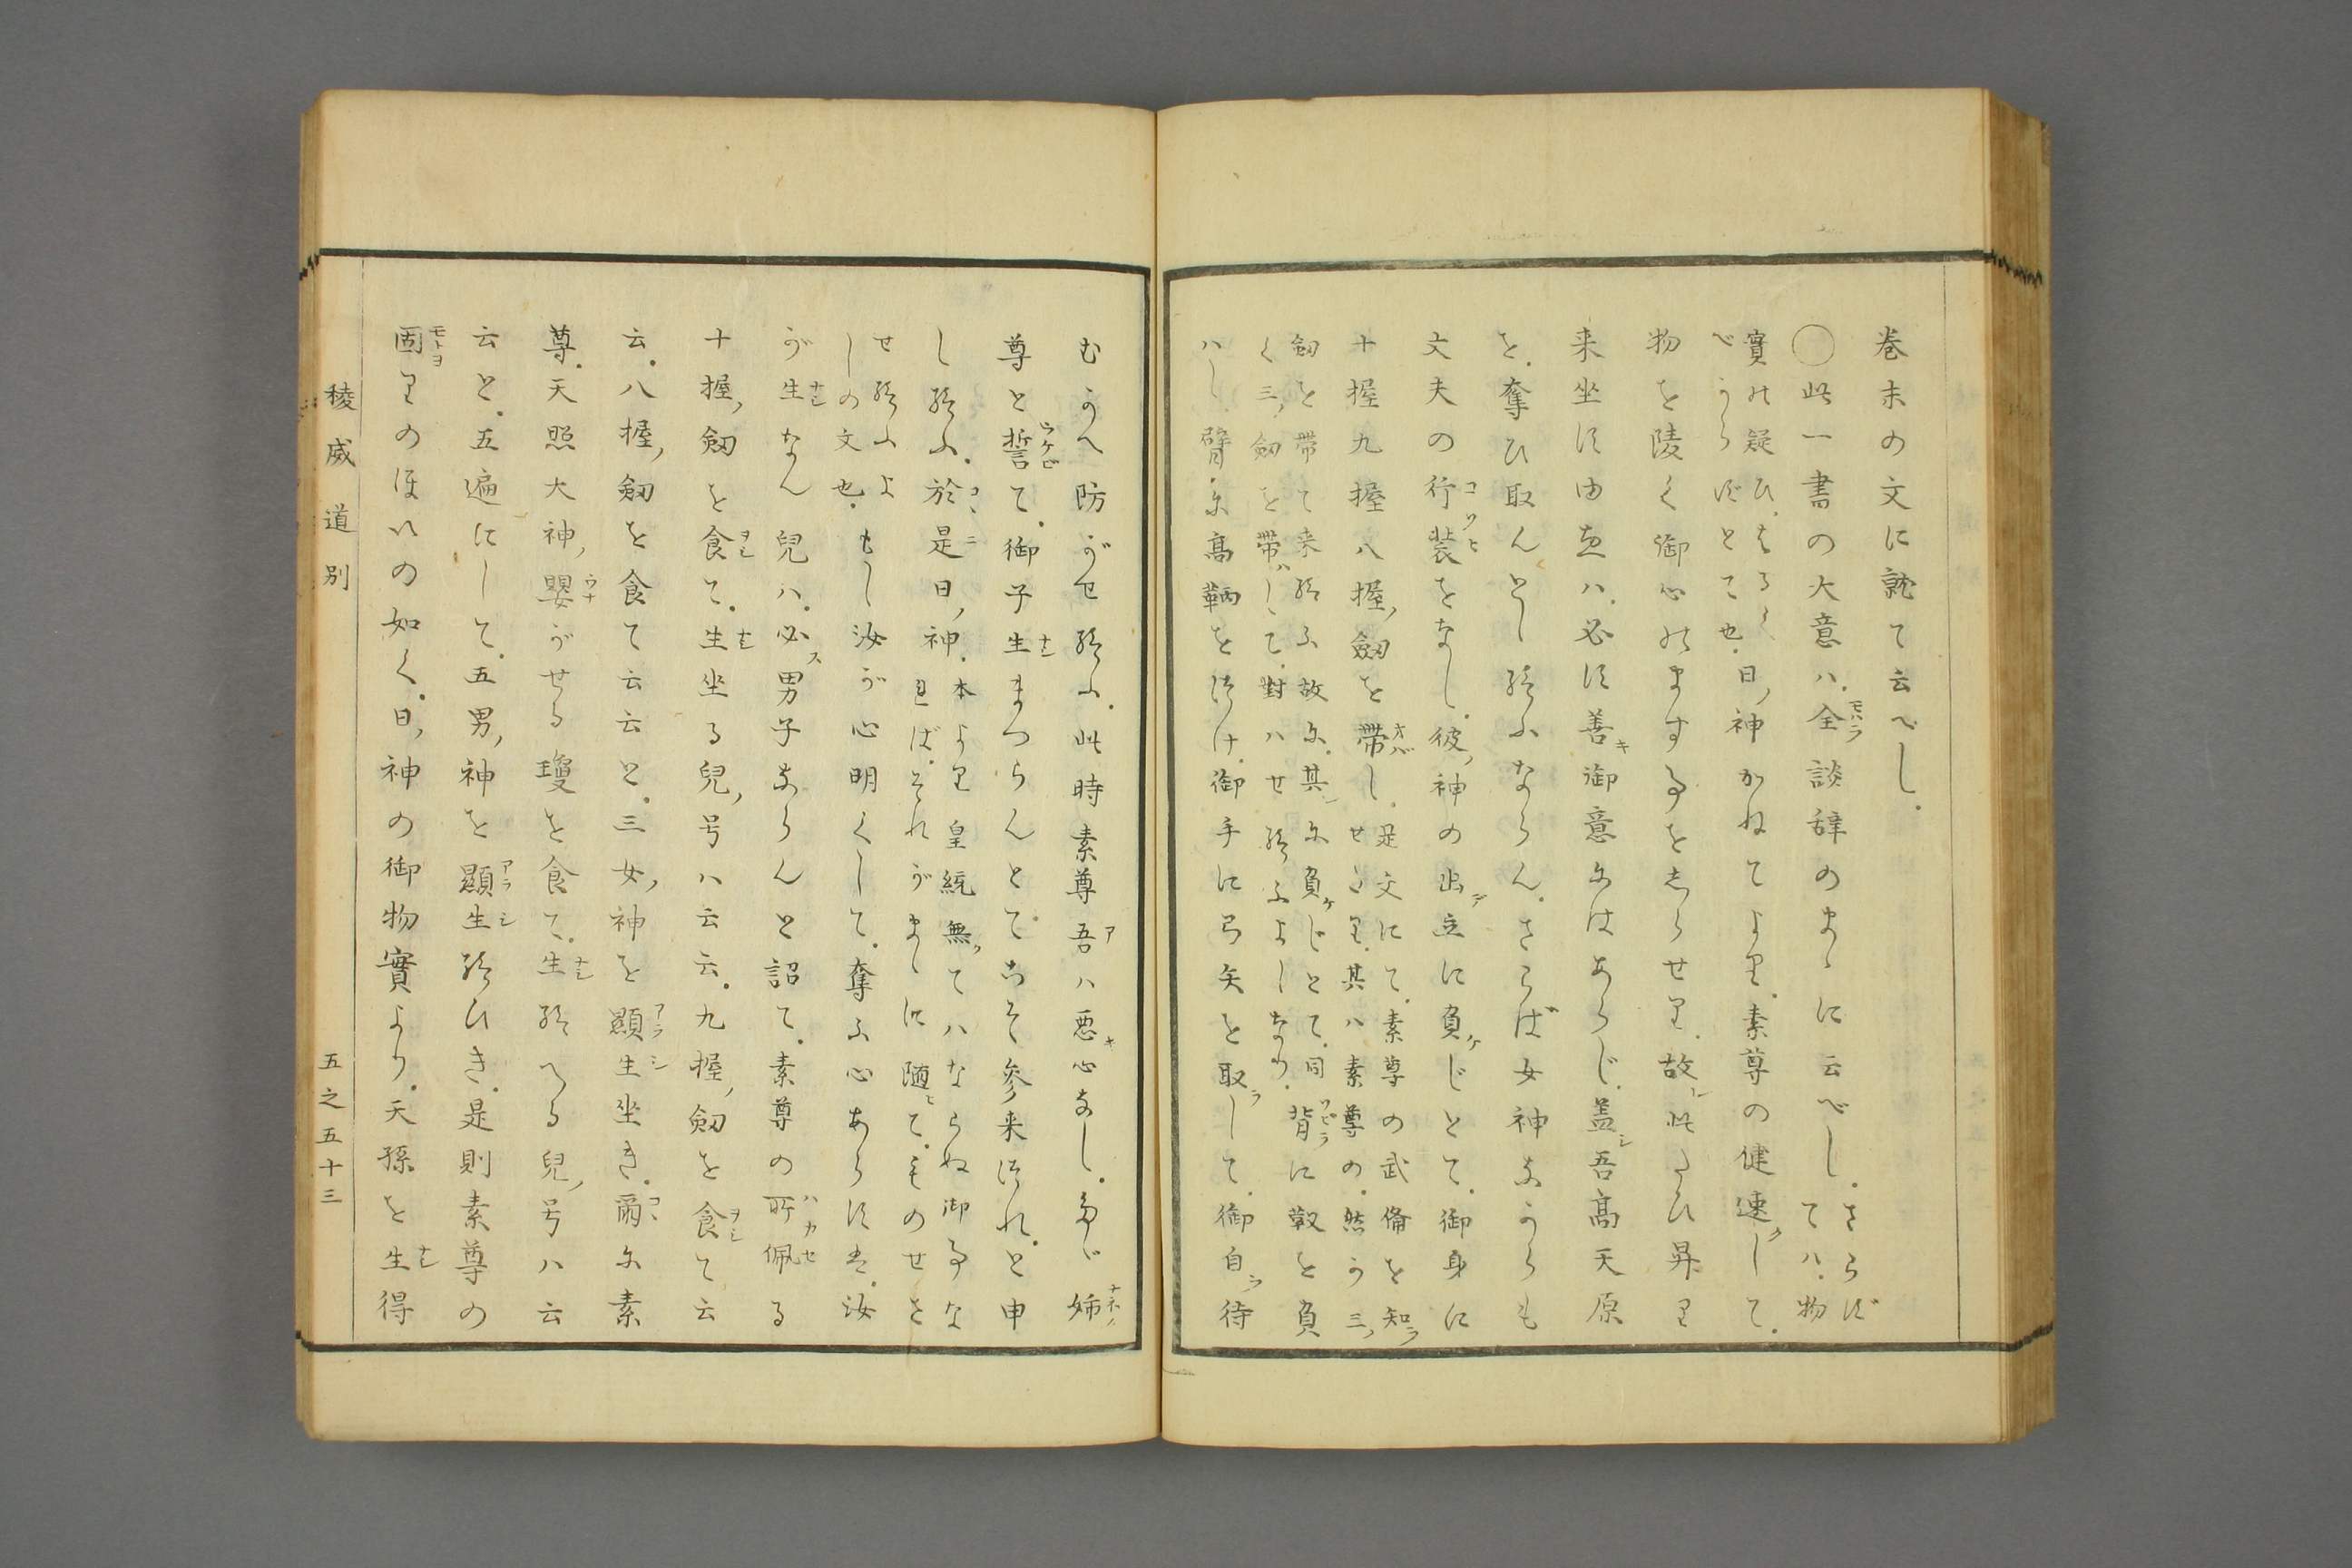 巻末の文に就て云べし。
〇此一書の大意ハ。全談辞のまゝに云べし。さらず
てハ。物
實の疑ひ。はるく
べうらずとて也。日ノ神かねてより。素尊の健速くして。
物を陵く御心のます事をしらせり。故レ此たひ昇り
来坐す由ハ。必す善キ御意にはあらじ。蓋シ吾高天原
を。奪ひ取んとし給ふならん。さらば女神なからも
丈夫の行装をなし。彼ノ神の出立に負ケじとて。御身に
十握九握八握ノ劔を帯し。是文にて。素尊の武備を知ラ
せたり。其ハ素尊の。然う三ノ
劔を帯て来給ふ故に。其レに負ケじとて。同
く三ノ劔を帯ハして。對ハせ給ふよしなり。背に靫を負
ハし。臂に高鞆をつけ。御手に弓矢を取ラして。御自ラ待
むうへ防がせ給ふ。此時素尊吾ハ悪キ心なし。姉
尊と誓て。御子生まつらんとてこそ参来つれ。と申
し給ふ。於是日ノ神。本より皇統無くてハならぬ御事な
れば。それがまゝに随ヒて。ものせさ
せ給ふよ
しの文也。もし汝が心明くして。奪ふ心あらずは。汝
が生なん兒ハ。必ス男子ならんと詔て。素尊の所佩る
十握ノ劔を食て。生坐る兒ノ号ハ云云。九握ノ劔を食て云
云。八握ノ劔を食て云云と。三女ノ神を顯生坐き。爾に素
尊。天照大神ノ嬰がせる瓊を食て。生給へる兒ノ号ハ云
云と。五遍にして。五男ノ神を顯生給ひき。是則素尊の
固りのほいの如く。日ノ神の御物實より。天孫を生得
稜威道別
五之五十三